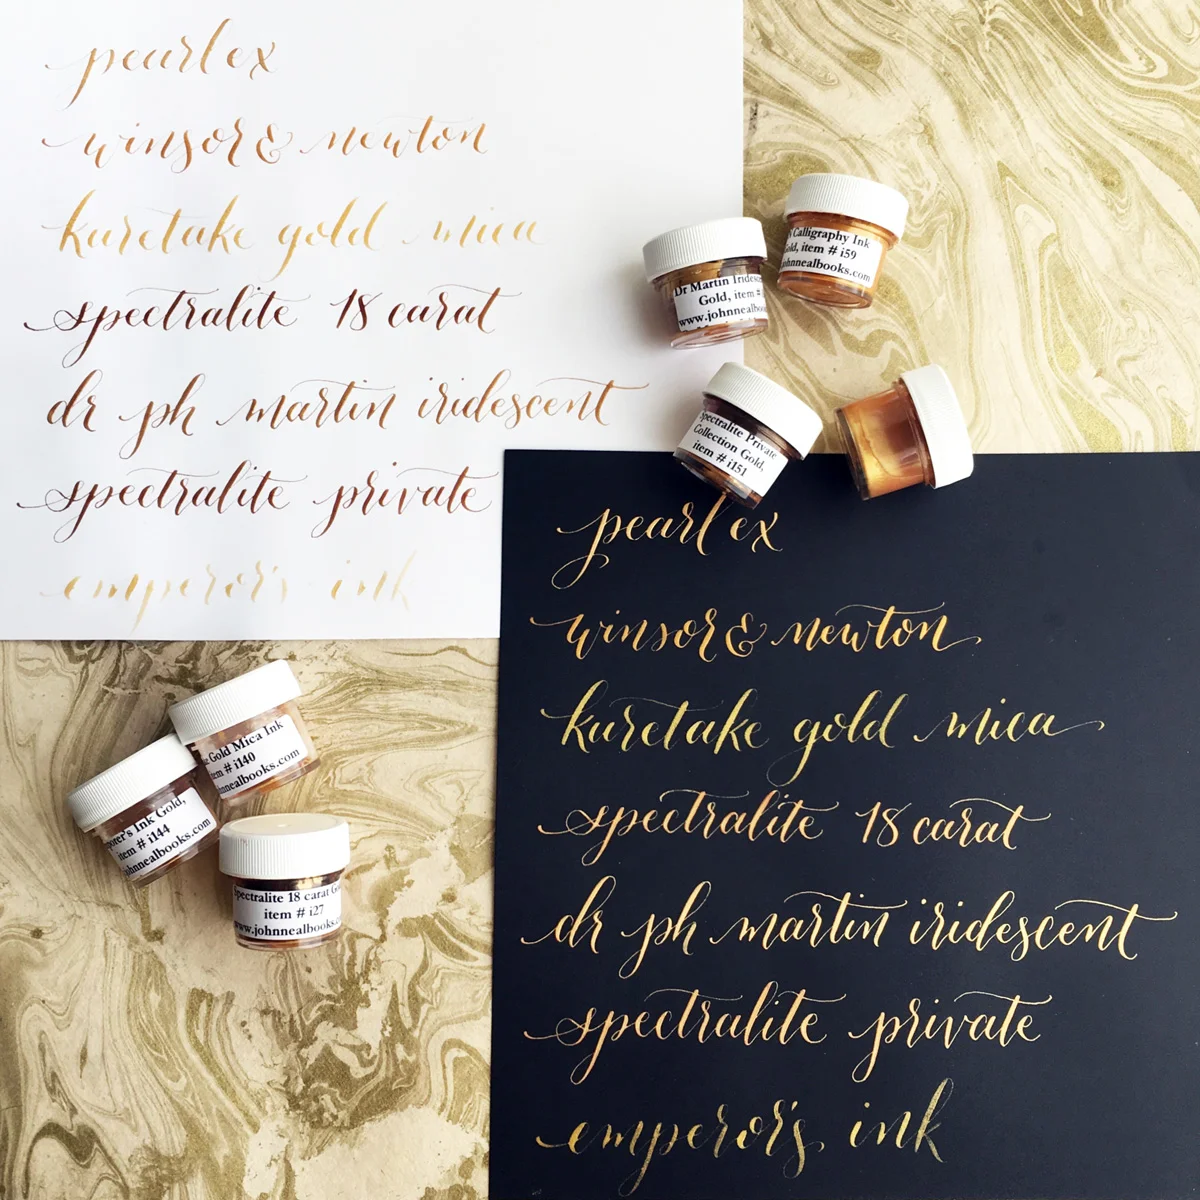 pearl ex
winsor & newton
kuretake gold mica
spectralite 18 carat
dr ph martin iridescent
spectralite private
emperor's ink
Calligraphy Ink
Gold, item # i59
johnnealbooks.com
Dr Martin Iridesc
Gold, item #
www.johnnealboo
Spectralite Private
Collection Gold,
item # i151
pearl ex
winsor & newton
kuretake gold mica
spectralite 18 carat
dr ph martin iridescent
spectralite private
emperor's ink
Gold Mica Ink
item # i140
johnnealbooks.com
Ink Gold,
item # i144
johnnealbooks.com
Spectralite 18 carat Go
item # i27
www.johnnealbooks.